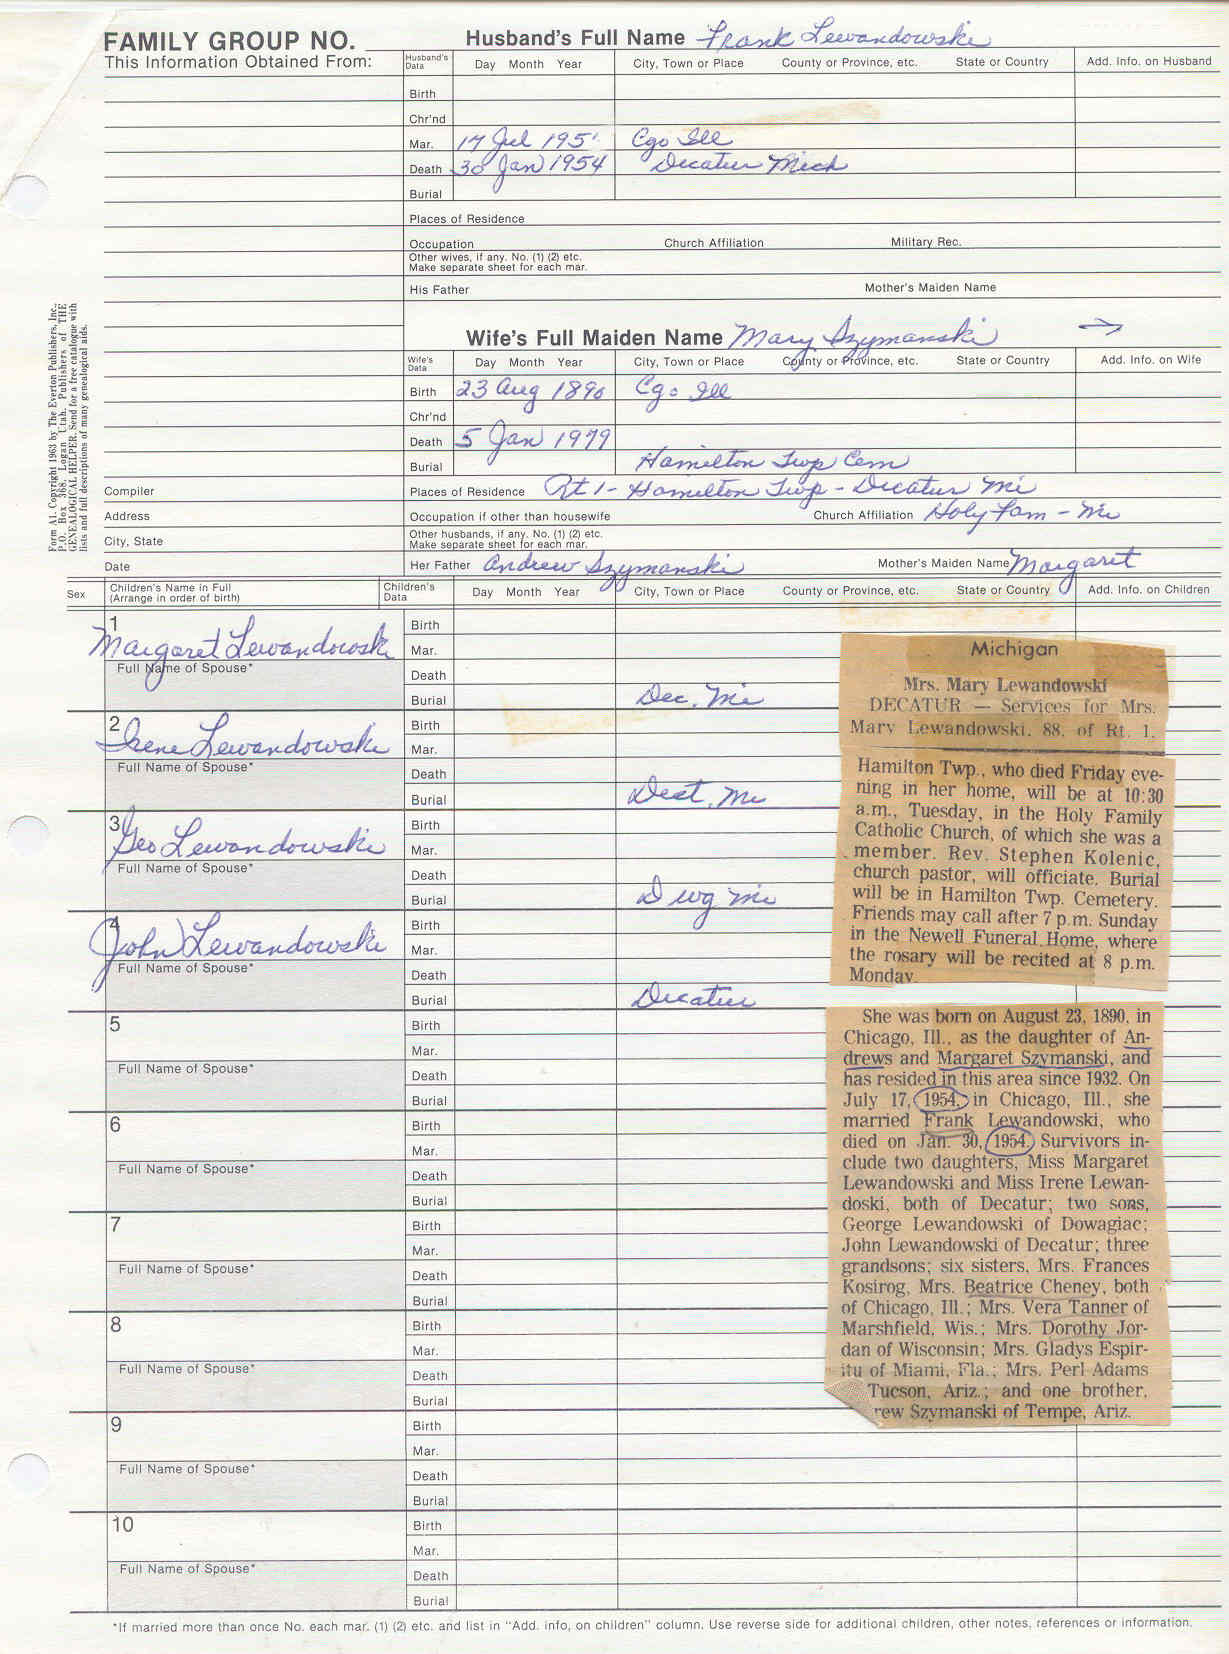 FAMILY GROUP NO.
This Information Obtained From:
Husband's Full Name Frank Lewandowski
Husband's Data Day Month Year City, Town or Place County or Province, etc. State or Country Add. Info. on Husband
Birth
Chr'nd
Mar. 17 Jul 195 Cgo Ill
Death 30 Jan 1954 Decatur Mich
Burial
Places of Residence
Occupation Church Affiliation Military Rec.
Other wives, if any. No. (1) (2) etc.
Make separate sheet for each mar.
His Father Mother's Maiden Name
Wife's Full Maiden Name Mary Szymanski →
Wife's Data Day Month Year City, Town or Place County or Province, etc. State or Country Add. Info. on Wife
Birth 23 Aug 1890 Cgo Ill
Chr'nd
Death 5 Jan 1979
Burial Hamilton Twp Cem
Compiler Places of Residence Rt 1 - Hamilton Twp - Decatur Mi
Address Occupation if other than housewife Church Affiliation Holy Fam - Mi
City, State Other husbands, if any. No. (1) (2) etc.
Make separate sheet for each mar.
Date Her Father Andrew Szymanski Mother's Maiden Name Margaret
Form A1. Copyright 1963 by The Everton Publishers, Inc.,
P.O. Box 368, Logan Utah. Publishers of THE
GENEALOGICAL HELPER. Send for a free catalogue with
lists and full descriptions of many genealogical aids.
Sex Children's Name in Full
(Arrange in order of birth) Children's Data Day Month Year City, Town or Place County or Province, etc. State or Country Add. Info. on Children
1 Birth
Margaret Lewandowski Mar.
Full Name of Spouse* Death
Burial Dec, Mi
2 Birth
Irene Lewandowski Mar.
Full Name of Spouse* Death
Burial Mi
3 Birth
Geo Lewandowski Mar.
Full Name of Spouse* Death
Burial Dwg Mi
4 Birth
John Lewandowski Mar.
Full Name of Spouse* Death
Burial Decatur
5 Birth
Mar.
Full Name of Spouse* Death
Burial
6 Birth
Mar.
Full Name of Spouse* Death
Burial
7 Birth
Mar.
Full Name of Spouse* Death
Burial
8 Birth
Mar.
Full Name of Spouse* Death
Burial
9 Birth
Mar.
Full Name of Spouse* Death
Burial
10 Birth
Mar.
Full Name of Spouse* Death
Burial
Michigan
Mrs. Mary Lewandowski
DECATUR — Services for Mrs.
Mary Lewandowski, 88, of Rt. 1,
Hamilton Twp., who died Friday eve-
ning in her home, will be at 10:30
a.m., Tuesday, in the Holy Family
Catholic Church, of which she was a
member. Rev. Stephen Kolenic,
church pastor, will officiate. Burial
will be in Hamilton Twp. Cemetery.
Friends may call after 7 p.m. Sunday
in the Newell Funeral Home, where
the rosary will be recited at 8 p.m.
Monday.
She was born on August 23, 1890, in
Chicago, Ill., as the daughter of An-
drews and Margaret Szymanski, and
has resided in this area since 1932. On
July 17, 1954, in Chicago, Ill., she
married Frank Lewandowski, who
died on Jan. 30, 1954. Survivors in-
clude two daughters, Miss Margaret
Lewandowski and Miss Irene Lewan-
doski, both of Decatur; two sons,
George Lewandowski of Dowagiac;
John Lewandowski of Decatur; three
grandsons; six sisters, Mrs. Frances
Kosirog, Mrs. Beatrice Cheney, both
of Chicago, Ill.; Mrs. Vera Tanner of
Marshfield, Wis.; Mrs. Dorothy Jor-
dan of Wisconsin; Mrs. Gladys Espir-
itu of Miami, Fla.; Mrs. Perl Adams
Tucson, Ariz.; and one brother,
rew Szymanski of Tempe, Ariz.
*If married more than once No. each mar. (1) (2) etc. and list in "Add. info, on children" column. Use reverse side for additional children, other notes, references or information.